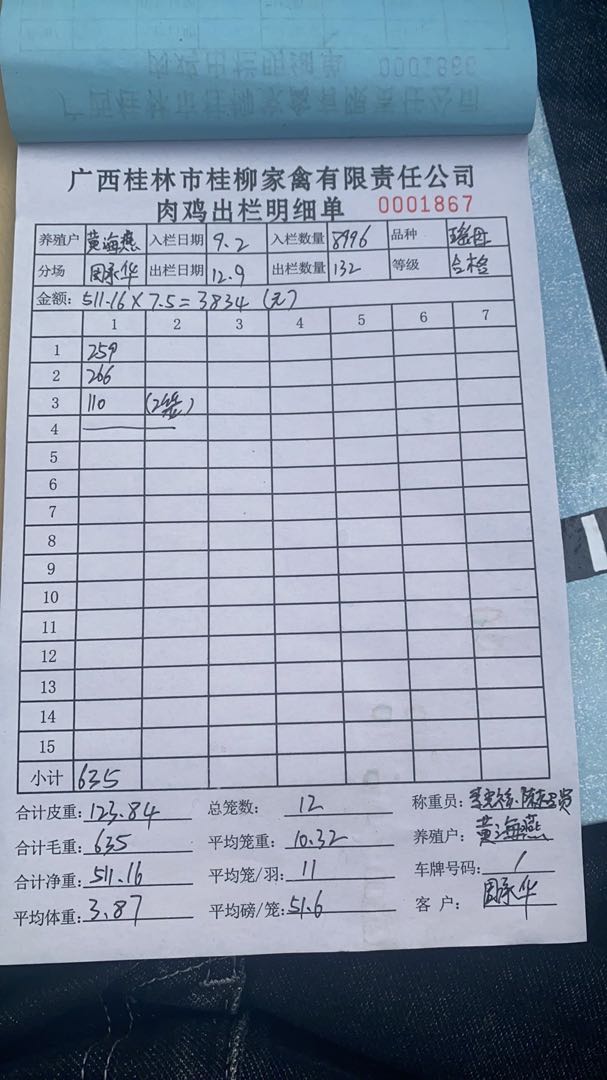 广西桂林市桂柳家禽有限责任公司
肉鸡出栏明细单 0001867
养殖户 黄海燕 入栏日期 9.2 入栏数量 8996 品种 瑶丹
分场 周承华 出栏日期 12.9 出栏数量 132 等级 合格
金额: 511.16 × 7.5 = 3834 (元)
1 2 3 4 5 6 7
1 259
2 266
3 110 (2笼)
4
5
6
7
8
9
10
11
12
13
14
15
小计 635
合计皮重: 123.84 总笼数: 12 称重员:
合计毛重: 635 平均笼重: 10.32 养殖户: 黄海燕
合计净重: 511.16 平均笼/羽: 11 车牌号码: /
平均体重: 3.87 平均磅/笼: 51.6 客户: 周承华